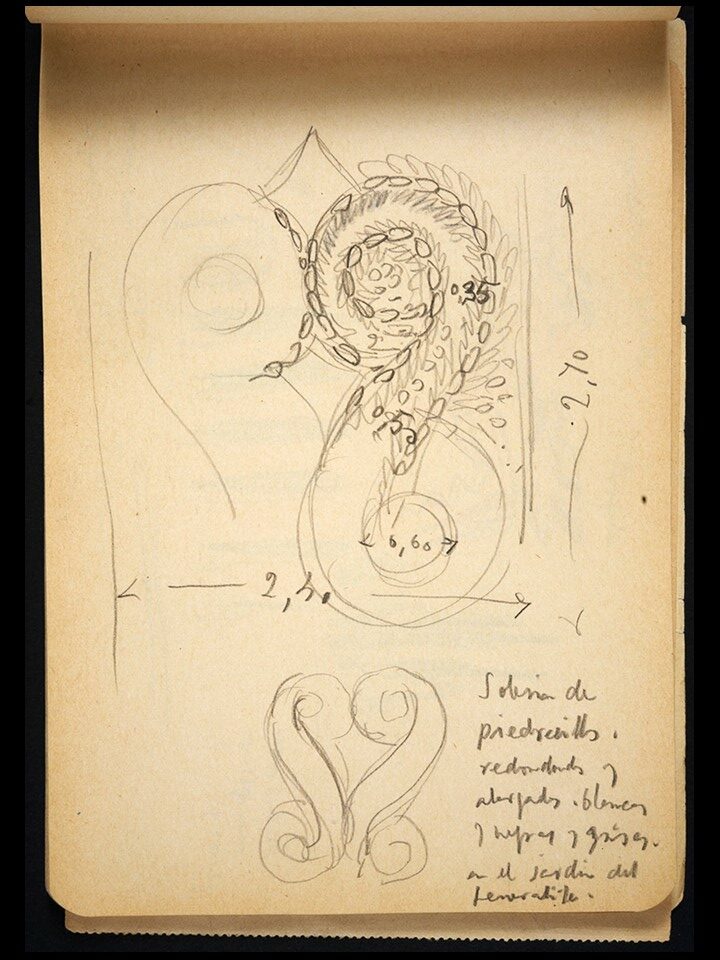 ,35
2,70
,53
0,60
2,40
Soleria de
piedrecitas.
redondeadas y
alargadas. blancas
y negras y grises.
en el jardin del
Generalife.